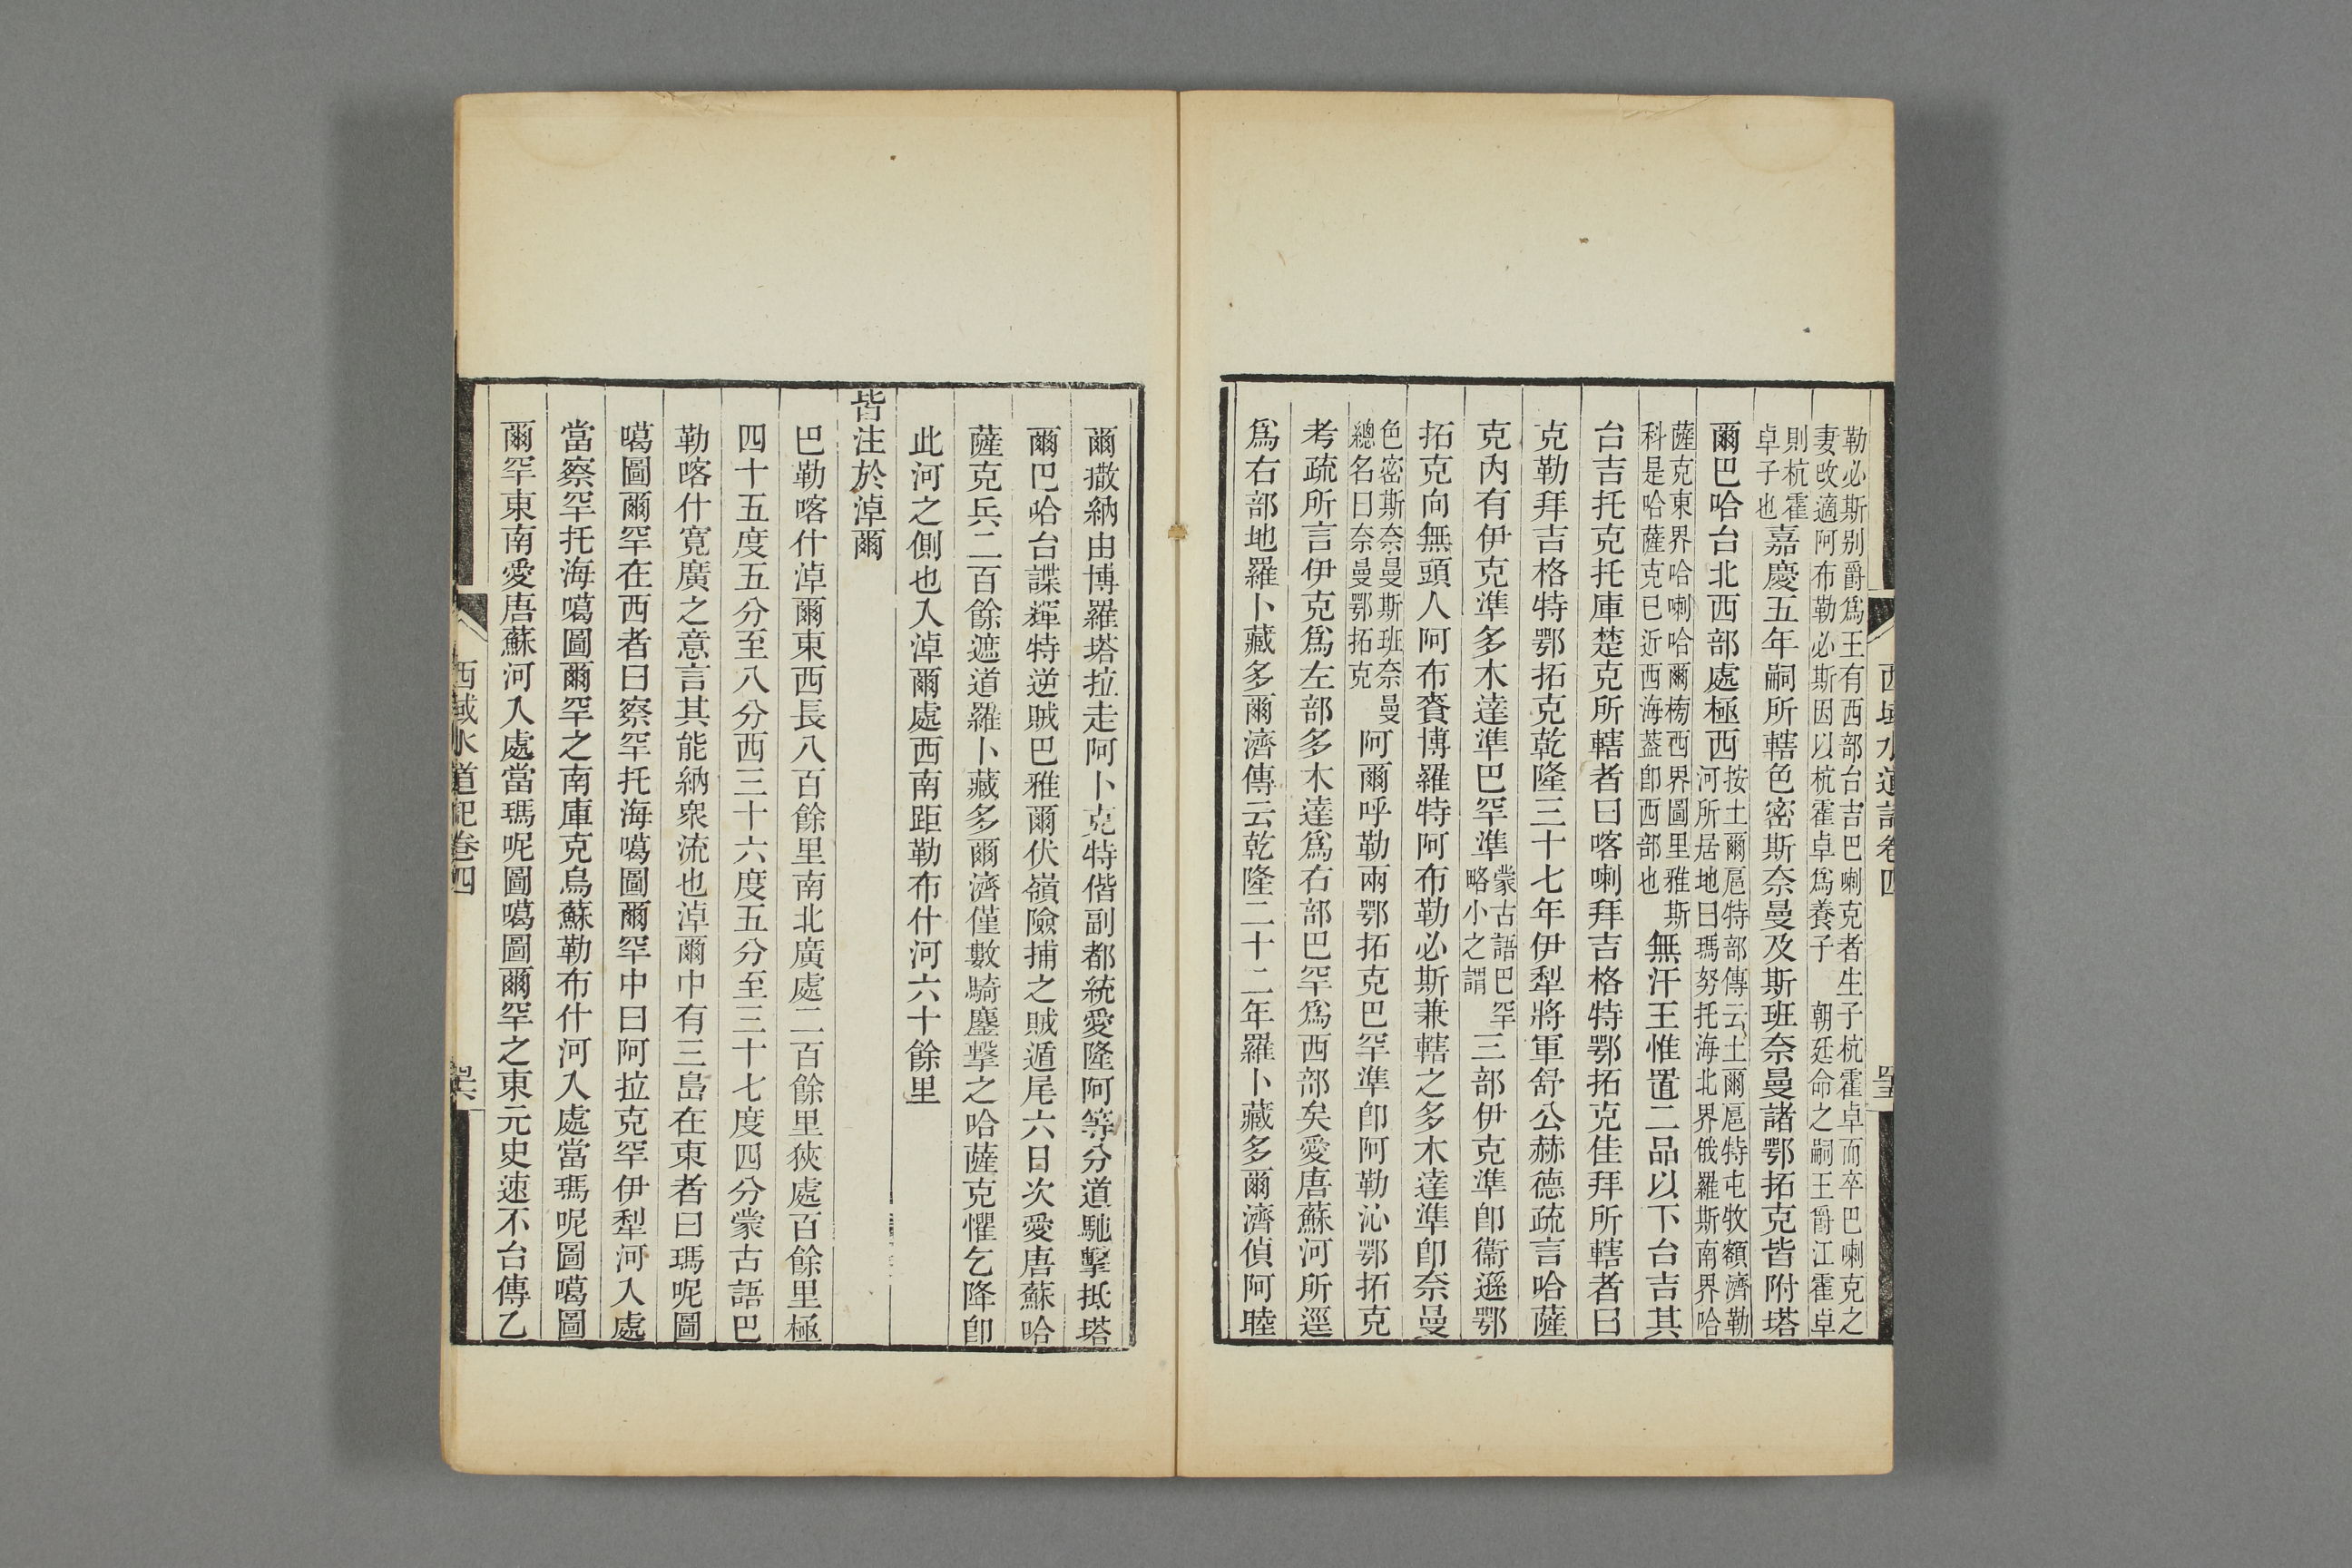 西域水道記卷四
勒必斯別爵爲王有西部台吉巴喇克者生子杭霍卓而卒巴喇克之
妻改適阿布勒必斯因以杭霍卓爲養子　朝廷命之嗣王爵江霍卓
則杭霍
卓子也
嘉慶五年嗣所轄色密斯奈曼及斯班奈曼諸鄂拓克皆附塔
爾巴哈台北西部處極西
按土爾扈特部傳云土爾扈特屯牧額濟勒
河所居地曰瑪努托海北界俄羅斯南界哈
薩克東界哈喇哈爾榜西界圖里雅斯
科是哈薩克已近西海葢卽西部也
無汗王惟置二品以下台吉其
台吉托克托庫楚克所轄者曰喀喇拜吉格特鄂拓克佳拜所轄者曰
克勒拜吉格特鄂拓克乾隆三十七年伊犁將軍舒公赫德疏言哈薩
克內有伊克準多木達準巴罕準
蒙古語巴罕
略小之謂
三部伊克準卽衞遜鄂
拓克向無頭人阿布賚博羅特阿布勒必斯兼轄之多木達準卽奈曼
色密斯奈曼斯班奈曼
總名曰奈曼鄂拓克
阿爾呼勒兩鄂拓克巴罕準卽阿勒沁鄂拓克
考疏所言伊克爲左部多木達爲右部巴罕爲西部矣愛唐蘇河所逕
爲右部地羅卜藏多爾濟傳云乾隆二十二年羅卜藏多爾濟偵阿睦
爾撒納由博羅塔拉走阿卜克特偕副都統愛隆阿等分道馳擊抵塔
爾巴哈台諜輝特逆賊巴雅爾伏嶺險捕之賊遁尾六日次愛唐蘇哈
薩克兵二百餘遮道羅卜藏多爾濟僅數騎鏖擊之哈薩克懼乞降卽
此河之側也入淖爾處西南距勒布什河六十餘里
皆注於淖爾
巴勒喀什淖爾東西長八百餘里南北廣處二百餘里狹處百餘里極
四十五度五分至八分西三十六度五分至三十七度四分蒙古語巴
勒喀什寬廣之意言其能納衆流也淖爾中有三島在東者曰瑪呢圖
噶圖爾罕在西者曰察罕托海噶圖爾罕中曰阿拉克罕伊犁河入處
當察罕托海噶圖爾罕之南庫克烏蘇勒布什河入處當瑪呢圖噶圖
爾罕東南愛唐蘇河入處當瑪呢圖噶圖爾罕之東元史速不台傳乙
西域水道記卷四